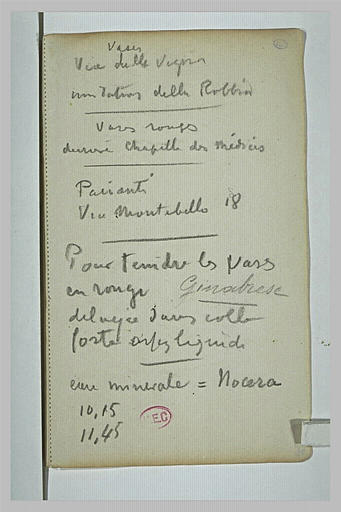 Vases
Via della Vigna
imitations della Robbia
Vases rouges
derrière Chapelle des Médicis
Via Montebello 18
Pour teindre les vases
en rouge Ginabrese
délayée dans colle
forte assez liquide
eau minerale = Nocera
10,15
11,45
EC